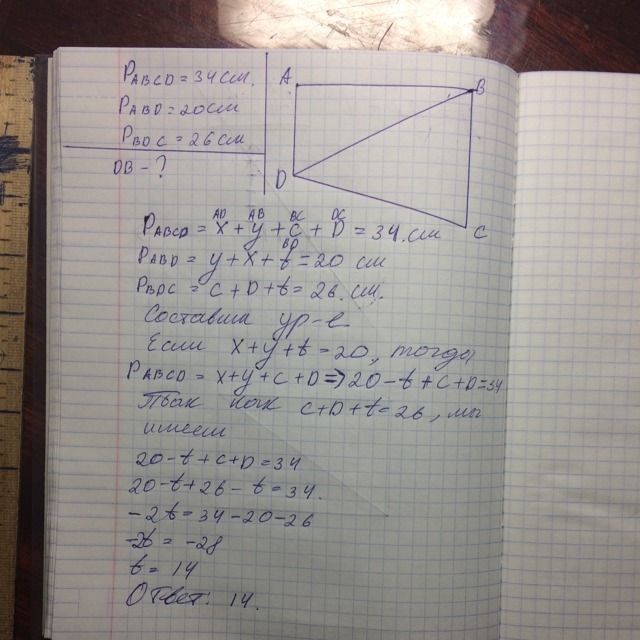 P ABCD = 34 см.
P ABD = 20 см
P BDC = 26 см
DB - ?
A
B
D
C
AD AB BC DC
P ABCD = x + y + C + D = 34. см
BD
P ABD = y + x + t = 20 см
P BDC = C + D + t = 26. см.
Составим ур-е
Если x + y + t = 20, тогда
P ABCD = x + y + C + D => 20 - t + C + D = 34
Так как C + D + t = 26, мы
имеем
20 - t + C + D = 34
20 - t + 26 - t = 34.
-2t = 34 - 20 - 26
-2t = -28
t = 14
Ответ: 14.